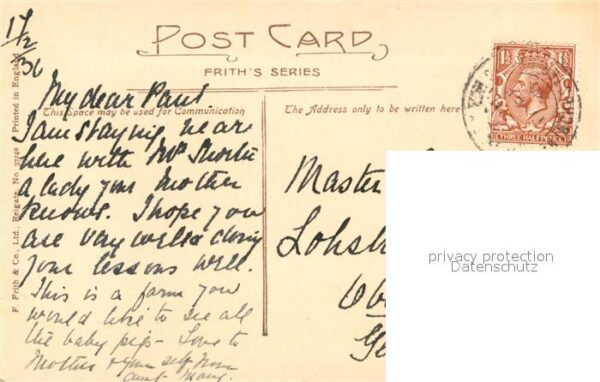 17/2
36
POST CARD
FRITH'S SERIES
This Space may be used for Communication
The Address only to be written here
F. Frith & Co., Ltd., Reigate. No. Printed in England
My dear Paul.
I am staying near
here with Mrs
a lady your Mother
knows. I hope you
are very well & doing
your lessons well.
This is a farm you
would love to see all
the baby pigs - Love to
Mother & your self from
Aunt Mary.
Master
Lohst
Obe
Ge
THREE HALFPENCE
1½ 1½
privacy protection
Datenschutz